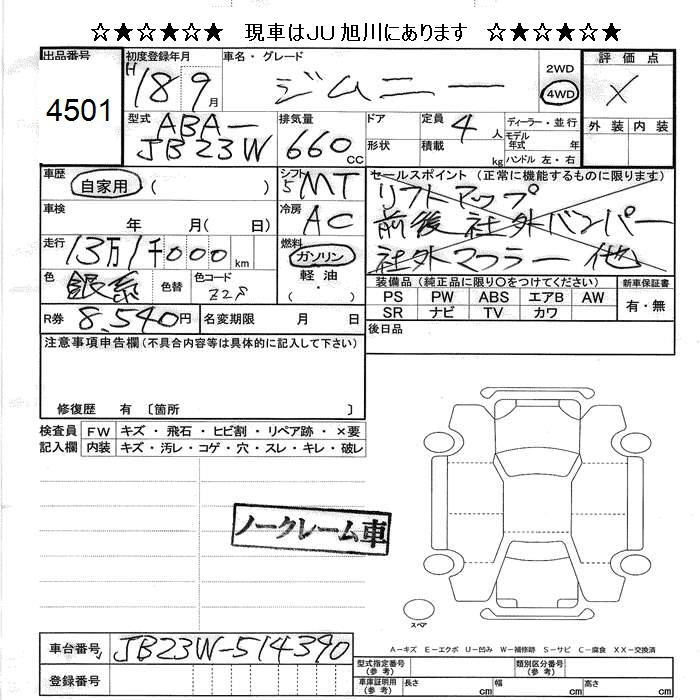 ☆★☆★☆★ 現車はJU旭川にあります ☆★☆★☆★
出品番号
4501
初度登録年月
H18 9月
車名・グレード
ジムニー
2WD
4WD
評価点
X
外装 内装
型式
ABA-
JB23W
排気量
660cc
ドア
形状
定員
4人
積載
kg
ディーラー・並行
モデル
年式 年
ハンドル 左・右
車歴
自家用 ( )
シフト
5 MT
セールスポイント (正常に機能するものに限ります)
リフトアップ
前後 社外バンパー
社外マフラー 他
車検
年 月( 日)
冷房
AC
走行
13万1千000km
燃料
ガソリン
軽油
( ・ )
色
銀系
色替
色コード
Z2S
装備品 (純正品に限り○をつけてください)
PS PW ABS エアB AW
SR ナビ TV カワ
新車保証書
有・無
R券 8,540円
名変期限 月 日
後日品
注意事項申告欄(不具合内容等は具体的に記入して下さい)
修復歴 有 〔箇所 〕
検査員
記入欄
FW キズ・飛石・ヒビ割・リペア跡・×要
内装 キズ・汚レ・コゲ・穴・スレ・キレ・破レ
ノークレーム車
スペア
A-キズ E-エクボ U-凹み W-補修跡 S-サビ C-腐食 XX-交換済
車台番号
JB23W-514390
登録番号
型式指定番号
(参考)
類別区分番号
(参考)
車庫証明用
(参考)
長さ cm
幅 cm
高さ cm